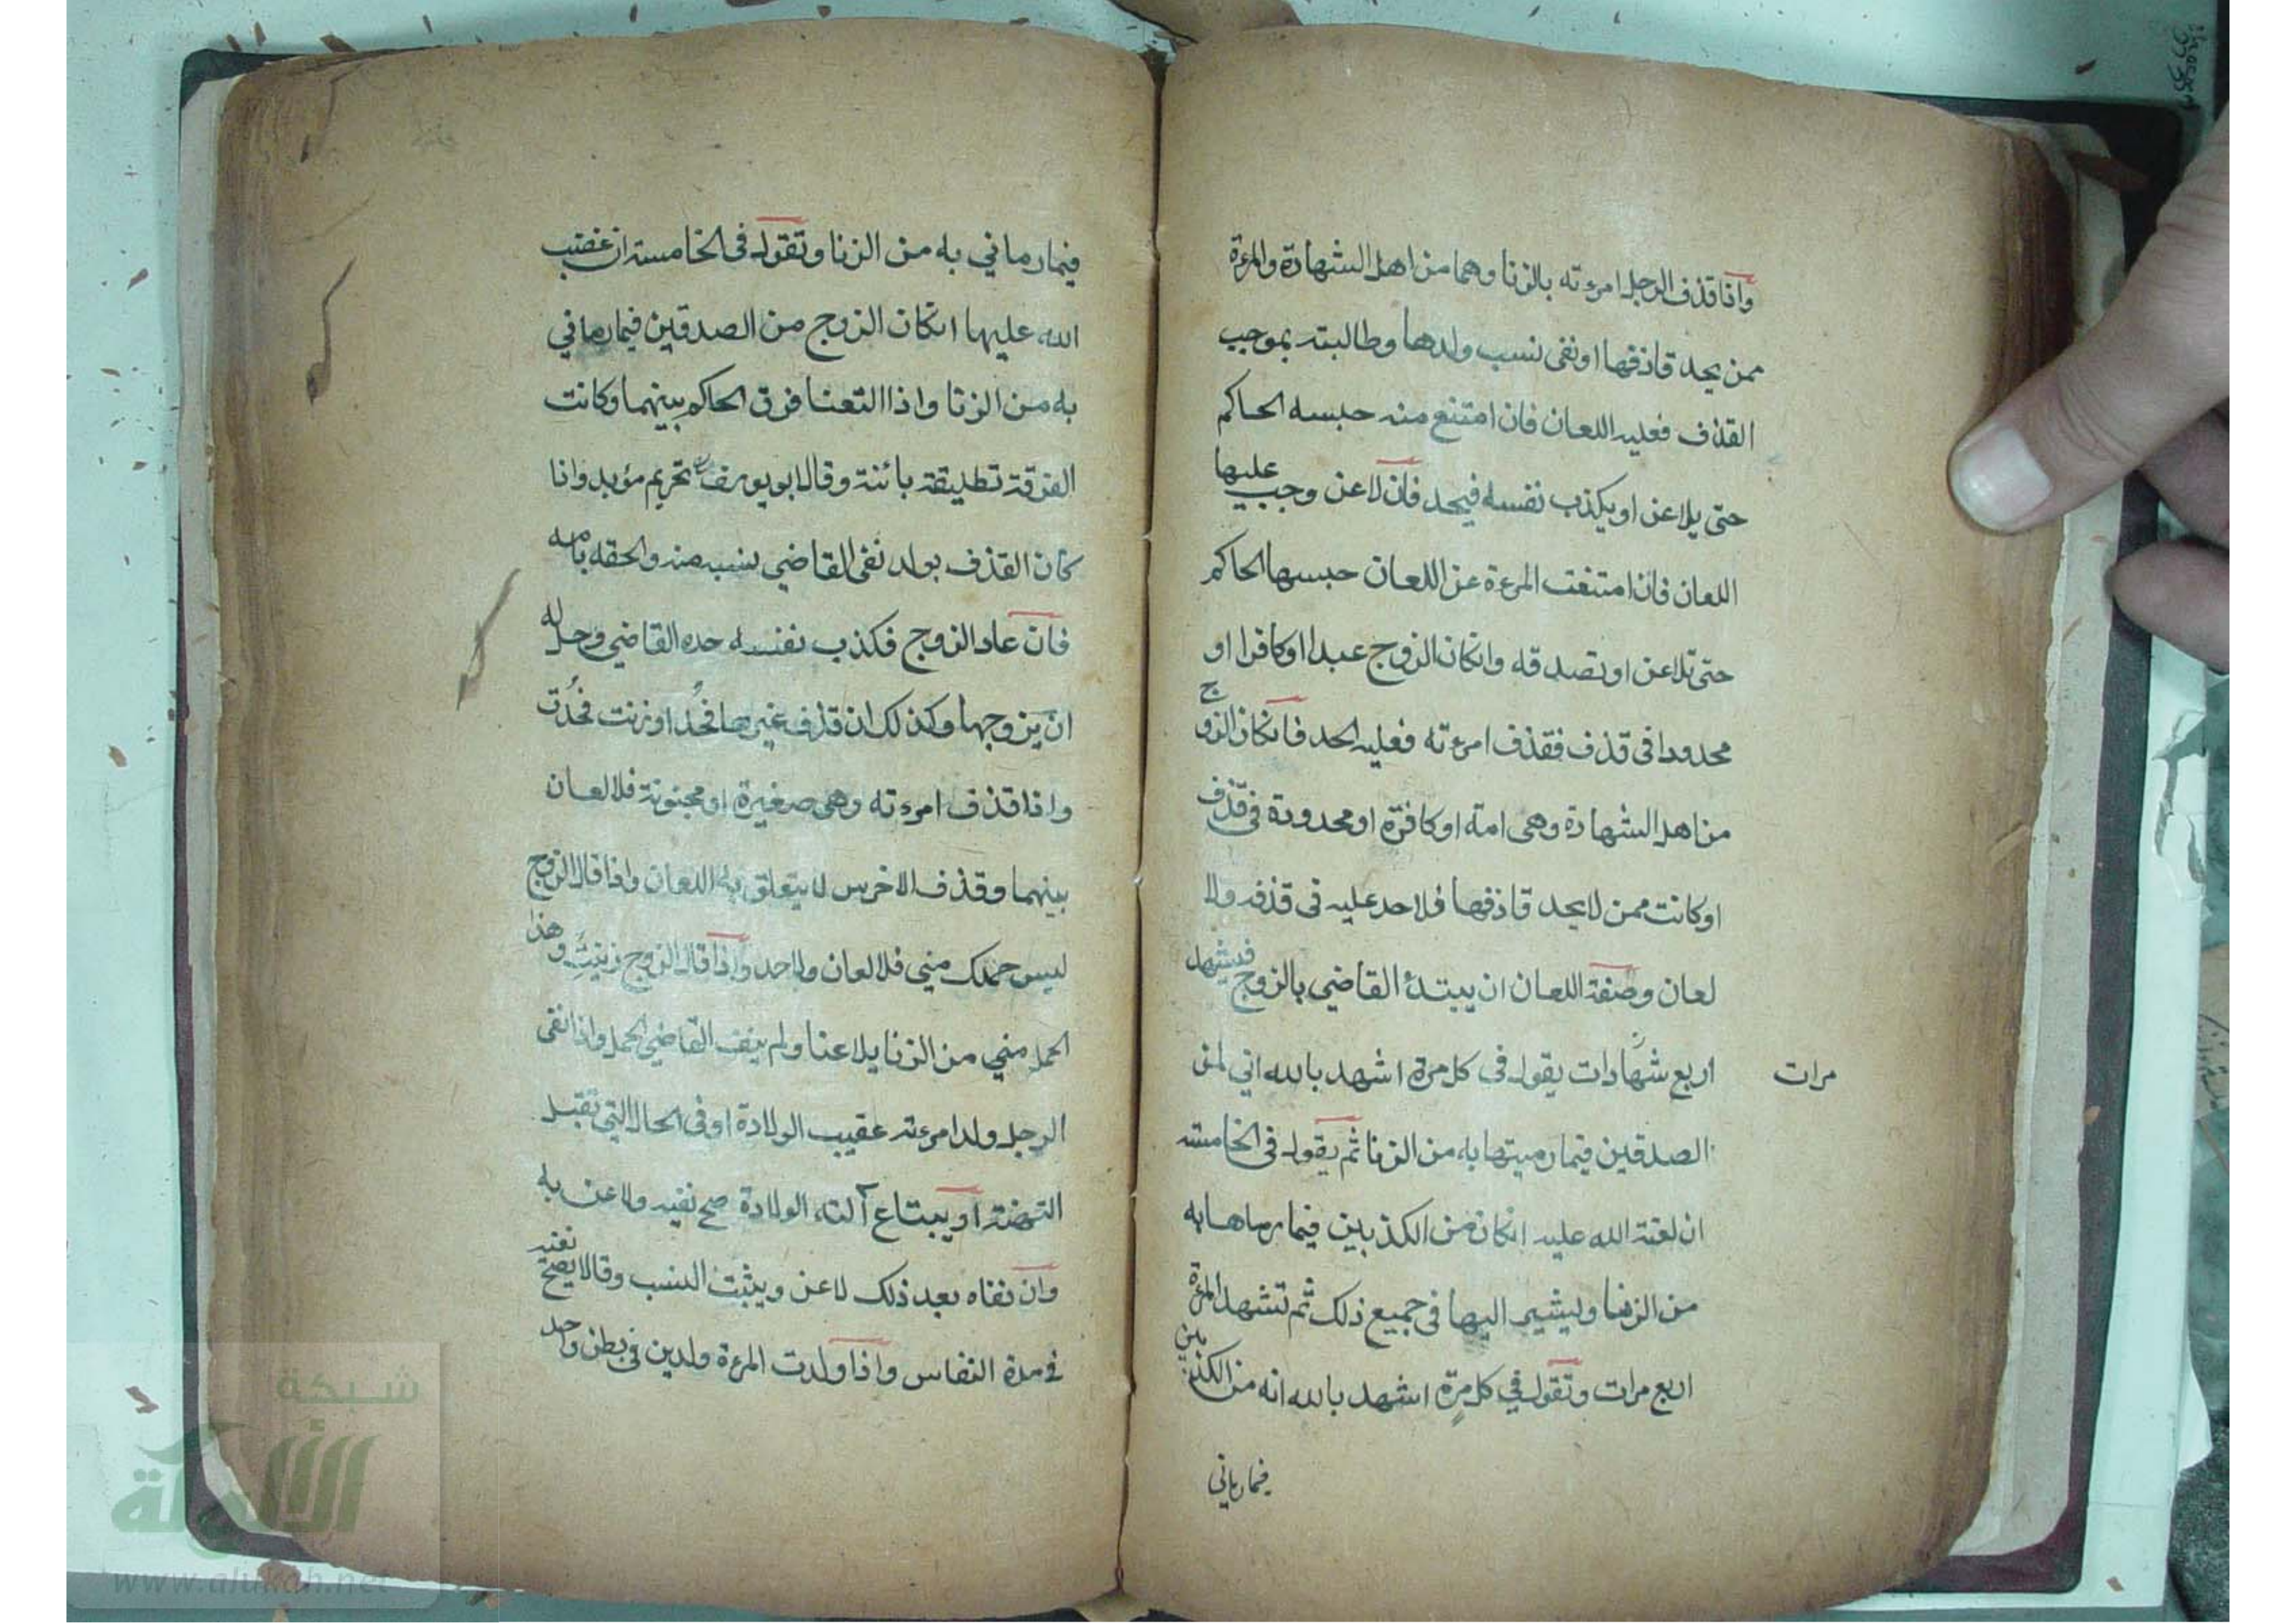 واذا قذف الرجل امرءته بالزنا وهما من اهل الشهادة والمرءة
ممن يحد قاذفها او نفى نسب ولدها وطالبته بموجب
القذف فعليه اللعان فان امتنع منه حبسه الحاكم
حتى يلاعن او يكذب نفسه فيحد فان لاعن وجب عليها
اللعان فان امتنعت المرءة عن اللعان حبسها الحاكم
حتى تلاعن او تصدقه وانكان الزوج عبدا او كافرا او
محدودا فى قذف فقذف امرءته فعليه الحد فانكان الزوج
من اهل الشهادة وهى امة او كافرة او محدودة فى قذف
او كانت ممن لا يحد قاذفها فلا حد عليه فى قذفه ولا
لعان وصفة اللعان ان يبتدئ القاضي بالزوج فيشهد
اربع شهادات يقول فى كل مرة اشهد بالله اني لمن
مرات
الصدقين فيما رميتها به من الزنا ثم يقول فى الخامسة
ان لعنة الله عليه انكان من الكذبين فيما رماها به
من الزنا ويشير اليها فى جميع ذلك ثم تشهد المرءة
اربع مرات وتقول في كل مرة اشهد بالله انه من الكذبين
فيما رماني
فيما رماني به من الزنا وتقول فى الخامسة ان غضب
الله عليها انكان الزوج من الصدقين فيما رماني
به من الزنا واذا التعنا فرق الحاكم بينهما وكانت
الفرقة تطليقة بائنة وقال ابو يوسف تحريم مؤبد واذا
كان القذف بولد نفى القاضي نسبه منه والحقه بامه
فان عاد الزوج فكذب نفسه حده القاضي وحل له
ان يتزوجها وكذلك ان قذف غيرها فحد او زنت فحدت
واذا قذف امرءته وهى صغيرة او مجنونة فلا لعان
بينهما وقذف الاخرس لا يتعلق به اللعان واذا قال الزوج
ليس حملك مني فلا لعان ولا حد واذا قال الزوج زنيت وهذا
الحمل مني من الزنا يلاعنا ولم ينف القاضي الحمل واذا نفى
الرجل ولد امرءته عقيب الولادة او فى الحال التي تقبل
التهنئة او يبتاع آلة الولادة صح نفيه ولاعن به
وان نفاه بعد ذلك لاعن ويثبت النسب وقالا يصح نفيه
في مدة النفاس واذا ولدت المرءة ولدين فى بطن واحد
شبكة
الألوكة
www.alukah.net